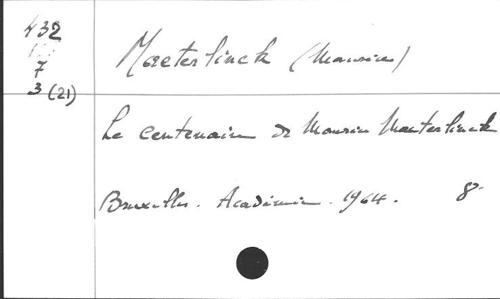 432
7
3 (21)
Maeterlinck (Maurice)
Le centenaire de Maurice Maeterlinck
Bruxelles. Académie. 1964. 8°